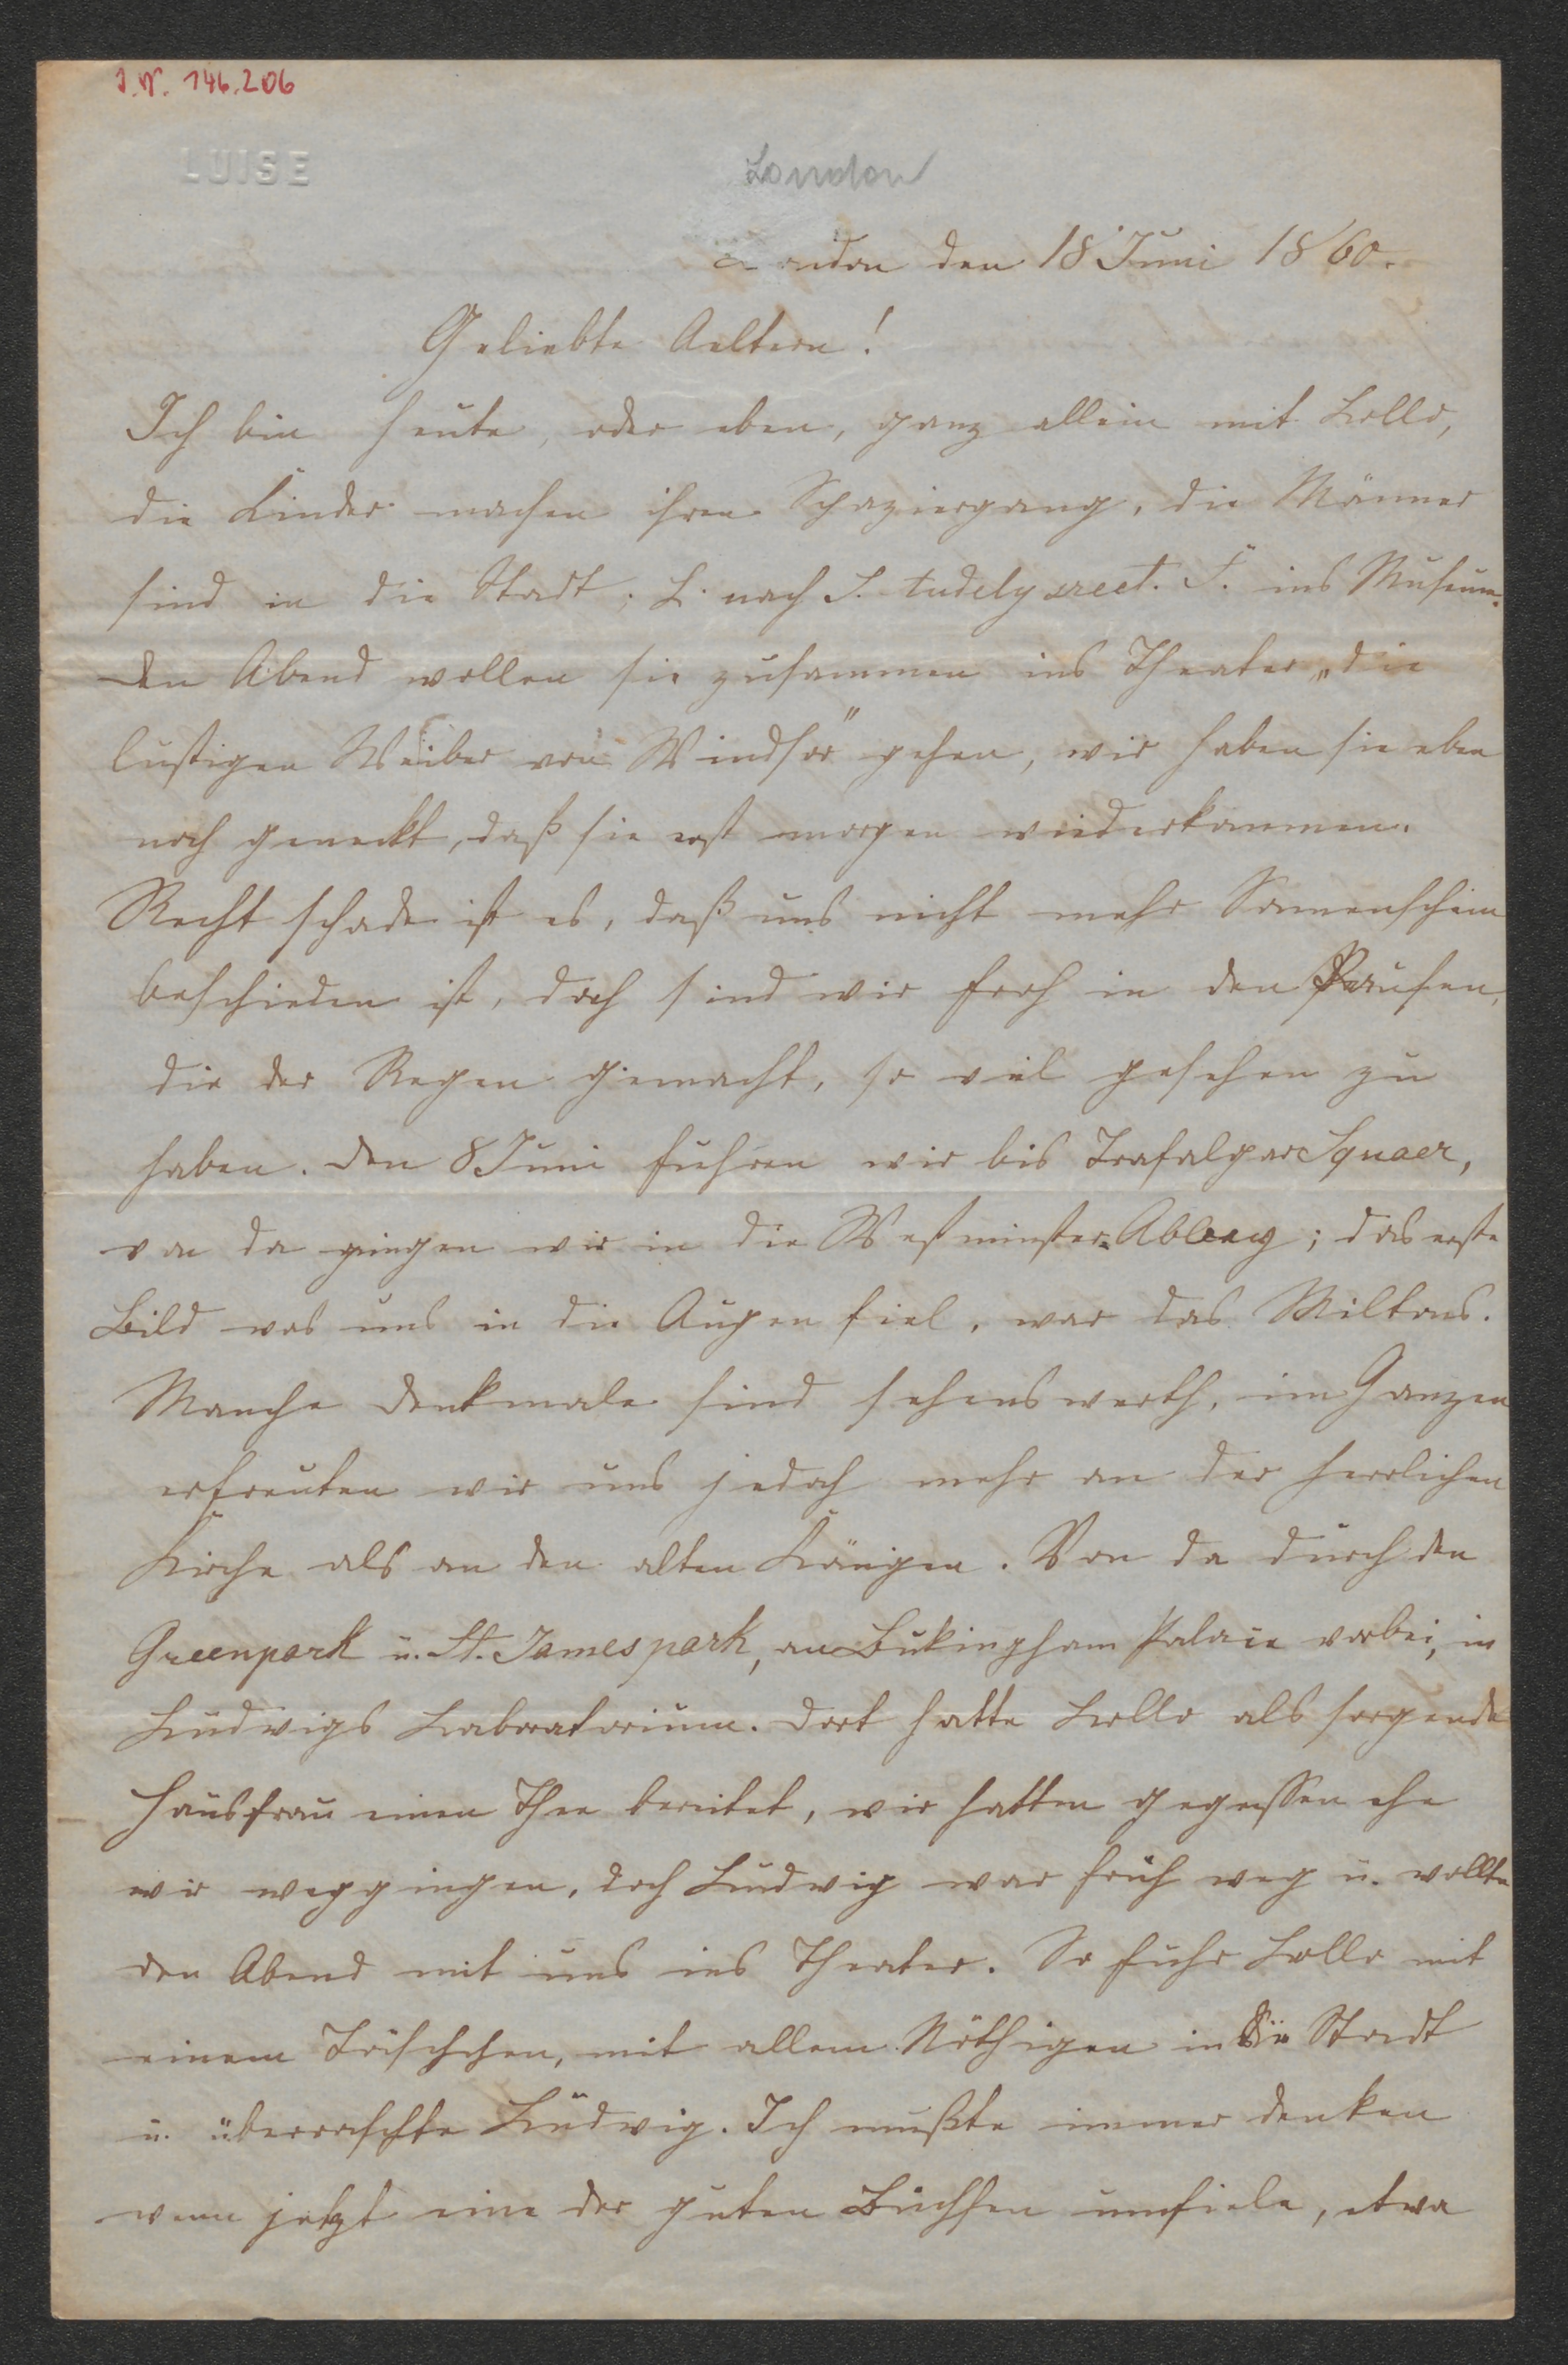 J. N. 146.206
LUISE
London
London den 18 Juni 1860.
Geliebte Aeltern!
Ich bin heute, oder eben, ganz allein mit Lollo,
die Kinder machen ihren Spaziergang, die Männer
sind in die Stadt; L. nach S. tudely sreet. F. ins Museum.
den Abend wollen sie zusammen ins Theater, „die
lustigen Weiber von Windsor" gehen, wir haben sie eben
noch geneckt, daß sie erst morgen wiederkommen.
Recht schade ist es, daß uns nicht mehr Sonnenschein
beschieden ist, doch sind wir froh in den Pausen,
die der Regen gemacht, so viel gesehen zu
haben. den 8 Juni fuhren wir bis Trafalgar Squaer,
von da gingen wir in die Westminster-Abbey; das erste
Bild was uns in die Augen fiel, war das Miltons.
Manche Denkmale sind sehenswerth, im Ganzen
erfreuten wir uns jedoch mehr an der herrlichen
Kirche als an den alten Königen. Von da durch den
Greenpark u. St. Jamespark, an Bukingham Palace vorbei, in
Ludwigs Laboratorium. Dort hatte Lollo als sorgende
Hausfrau einen Thee bereitet, wir hatten gegessen ehe
wir weggingen, doch Ludwig war früh weg u. wollte
den Abend mit uns ins Theater. So fuhr Lollo mit
einem Täschchen, mit allem Nöthigen in die Stadt
u. überraschte Ludwig. Ich mußte immer denken
wenn jetzt eine der guten Büchsen umfiele, etwa